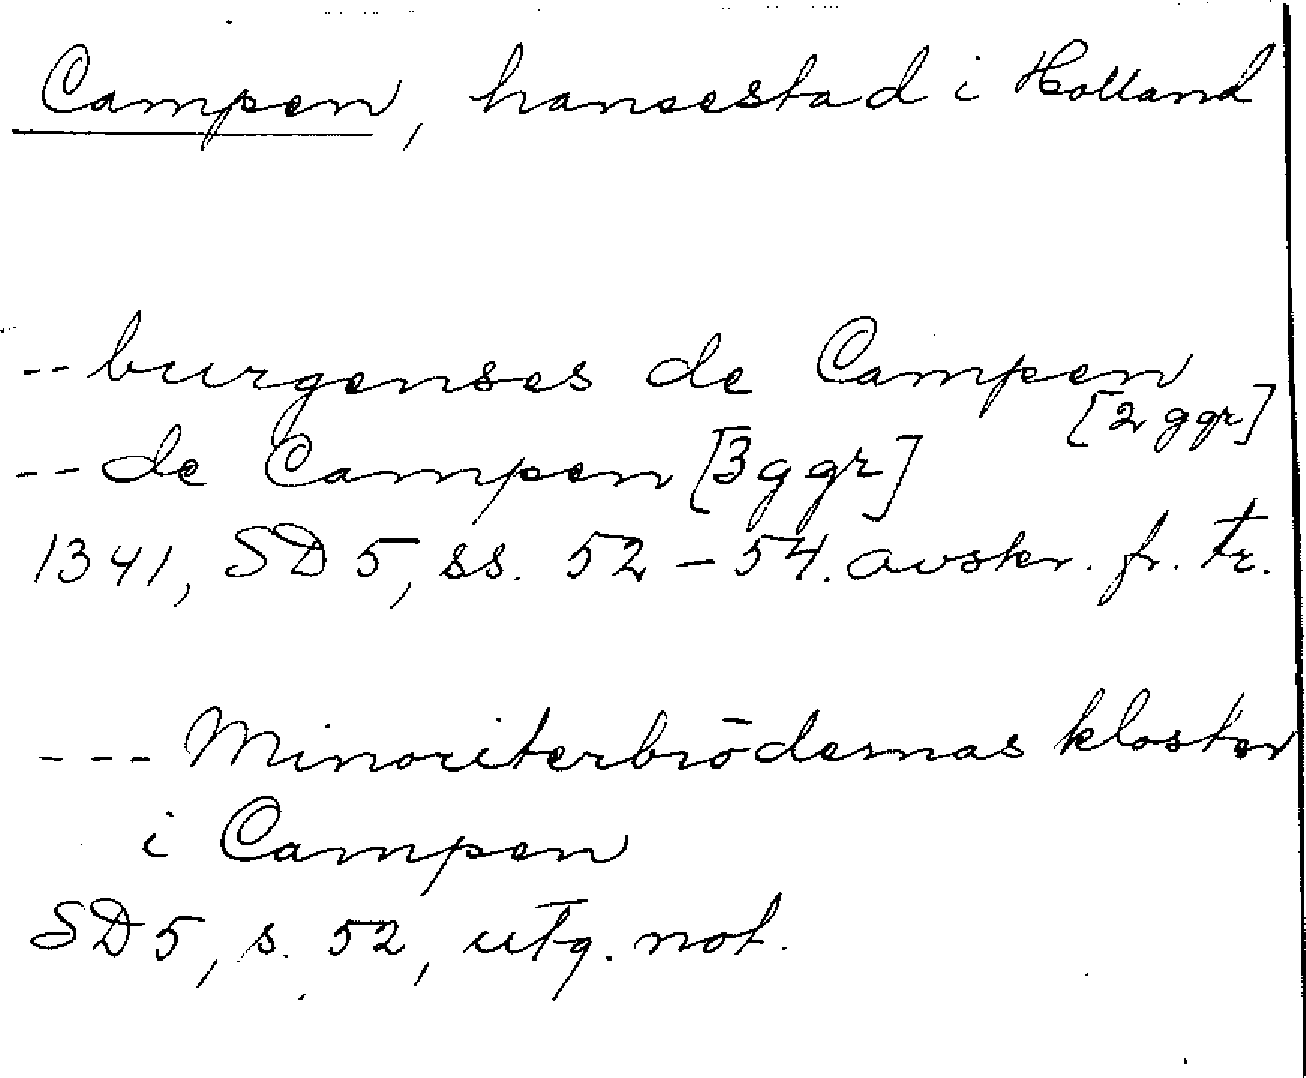 Campen, hansestad i Holland
-- burgenses de Campen
[2 ggr]
-- de Campen [3 ggr]
1341, SD 5, ss. 52-54. avskr. fr. tr.
--- Minoriterbrödernas kloster
i Campen
SD 5, s. 52, utg. not.